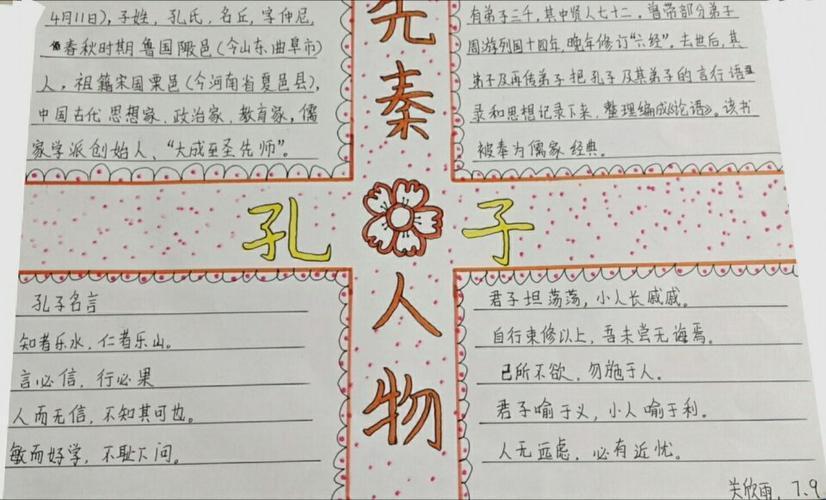 4月11日),子姓,孔氏,名丘,字仲尼,
春秋时期鲁国陬邑(今山东曲阜市)
人,祖籍宋国栗邑(今河南省夏邑县),
中国古代思想家、政治家、教育家,儒
家学派创始人、“大成至圣先师”。
有弟子三千,其中贤人七十二。曾带部分弟子
周游列国十四年,晚年修订“六经”。去世后,其
弟子及再传弟子把孔子及其弟子的言行语
录和思想记录下来,整理编成《论语》。该书
被奉为儒家经典。
先秦
孔子
人物
孔子名言
知者乐水,仁者乐山。
言必信,行必果
人而无信,不知其可也。
敏而好学,不耻下问。
君子坦荡荡,小人长戚戚。
自行束修以上,吾未尝无诲焉。
己所不欲,勿施于人。
君子喻于义,小人喻于利。
人无远虑,必有近忧。
关欣雨,7.9